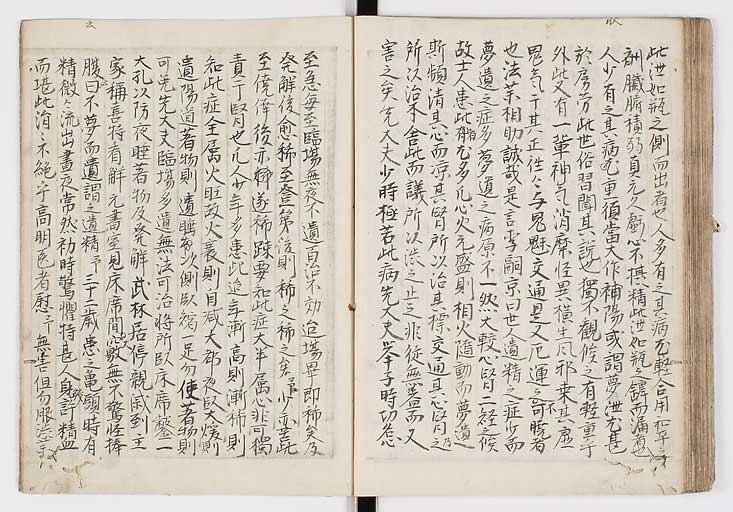 此泄如瓶之側而出者也人多有之其病尤輕合用和平之
劑臟腑積弱真元久虧心不攝精此泄如瓶之罅而漏者也
人少有之其病尤重須當大作補陽或謂夢泄尤甚
於房勞此世俗習聞其說也獨不觀候之有輕重乎
外此又有一輩神氣消靡怪異橫生風邪乘其虛
鬼氣干其正往往与鬼魅交通是又厄運之不可曉者
也法藥相助誠哉是言李嗣京曰世人遺精之症少而
夢遺之症多夢遺之病原不一然大較心腎二經之候
故士人患此尤多凡心火元盛則相火隨動而夢遺乃
斯頻清其心而凉其腎所以治其標交通其心腎之
所以治本舍此而議所以澁之止之非徒無益而又
害之矣先大夫少時極苦此病先大夫举子時功急
至急每至臨場無夜不遺百治不効迨場畢即稀矣及
発解後愈稀至登第後則稀之稀之矣予少亦苦此
至僥倖後亦稀遂稀踈要知此症大半属心非可獨
責于腎也凡人少年多患此迨年漸高則漸稀則
知此症全属火旺故火衰則自减大都夜卧大煖則
遺陽道著物則遺睡欲側卧縮一足勿使著物則
可先先大夫臨場多遺無法可治将所臥床席鑿一
大孔以防夜睡著物及発解武林居停親戚到主
家稱喜特看解元書室見床席間竅無不驚怪捧
腹曰不夢而遺謂之遺精予三十二歲患之亀頭時有
精微々流出晝夜常然初時驚懼特甚人身幾許精血
而堪此涓々不絕乎高明医者慰予無害但勿服澁药